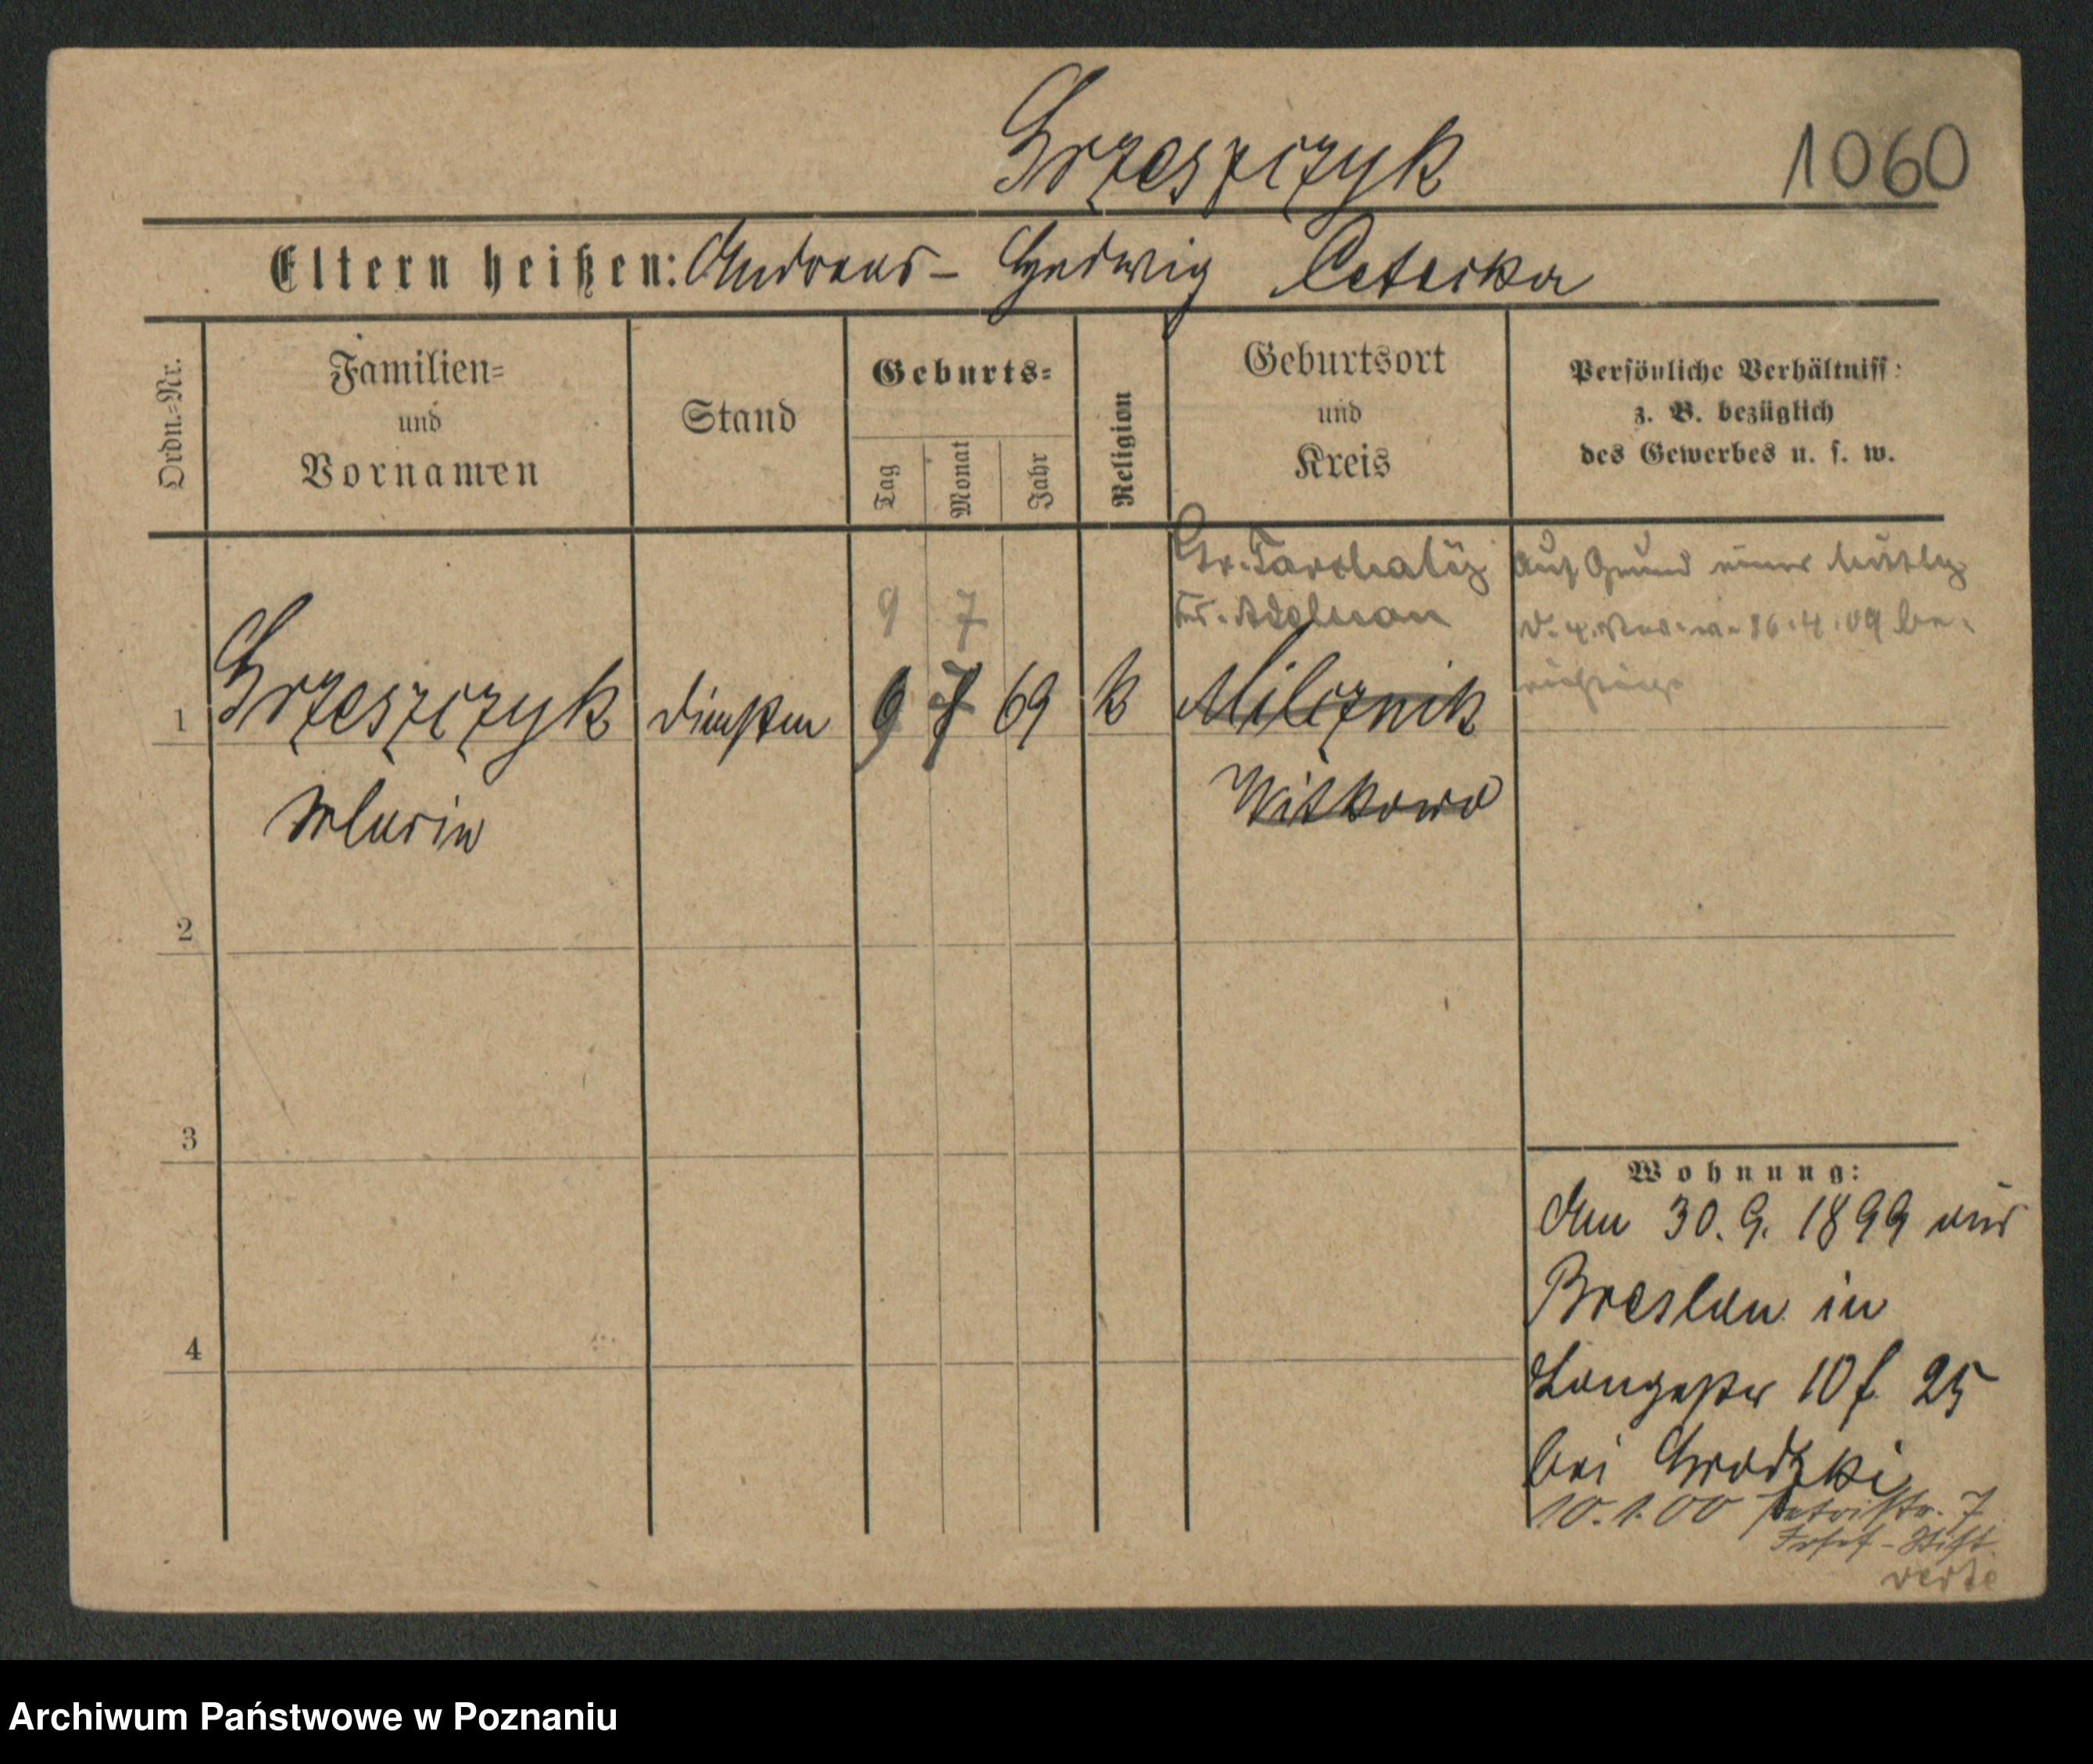 Grzeszczyk 1060
Eltern heißen: Andreas - Hedwig Ceterka
Ordn.-Nr.
Familien=
und
Vornamen
Stand
Geburts=
Tag
Monat
Jahr
Religion
Geburtsort
und
Kreis
Persönliche Verhältniss:
z. B. bezüglich
des Gewerbes u. s. w.
Gr. Tarchaly
Kr. Adelnau
Auf Grund einer
9 7
16.4.09 be-
richtigt
1 Grzeszczyk 9 7 69 k Milcznik
Maria
Witkowo
2
3
4
Wohnung:
Am 30.9. 1899 aus
Breslau in
Langestr 10 f. 25
bei Grodzki
10.1.00 Petristr. 7
Josef-Stift
verte
Archiwum Państwowe w Poznaniu